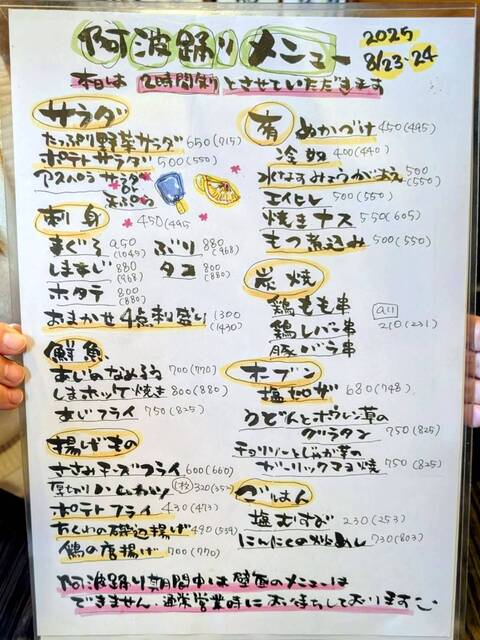 阿波踊りメニュー
2025
8/23・24
本日は 2時間制 とさせていただきます
サラダ
たっぷり野菜サラダ 650(715)
ポテトサラダ 500(550)
アスパラサラダ
or
天ぷら
450(495
刺身
まぐろ 950(1045)
ぶり 880(968)
しまあじ 880(968)
タコ 800(880)
ホタテ 800(880)
おまかせ4点刺盛り 1300(1430)
鮮魚
あじのなめろう 700(770)
しまホッケ焼き 800(880)
あじフライ 750(825)
揚げもの
ささみチーズフライ 600(660)
厚切りハムカツ (1枚) 320(352)
ポテトフライ 430(473)
ちくわの磯辺揚げ 490(539)
鶏の唐揚げ 700(770)
肴
ぬかづけ 450(495)
冷奴 400(440)
水なすみょうがあえ 500(550)
エイヒレ 500(550)
焼きナス 550(605)
もつ煮込み 500(550)
炭焼
鶏もも串
鶏レバー串
豚バラ串
all
210(231)
オーブン
塩ピザ 680(748)
うどんとホウレン草の
グラタン 750(825)
チョリソーとじゃが芋の
ガーリックマヨ焼 750(825)
ごはん
塩むすび 230(253)
にんにくの炒めし 730(803)
阿波踊り期間中は壁面のメニューは
できません。通常営業時にお待ちしております